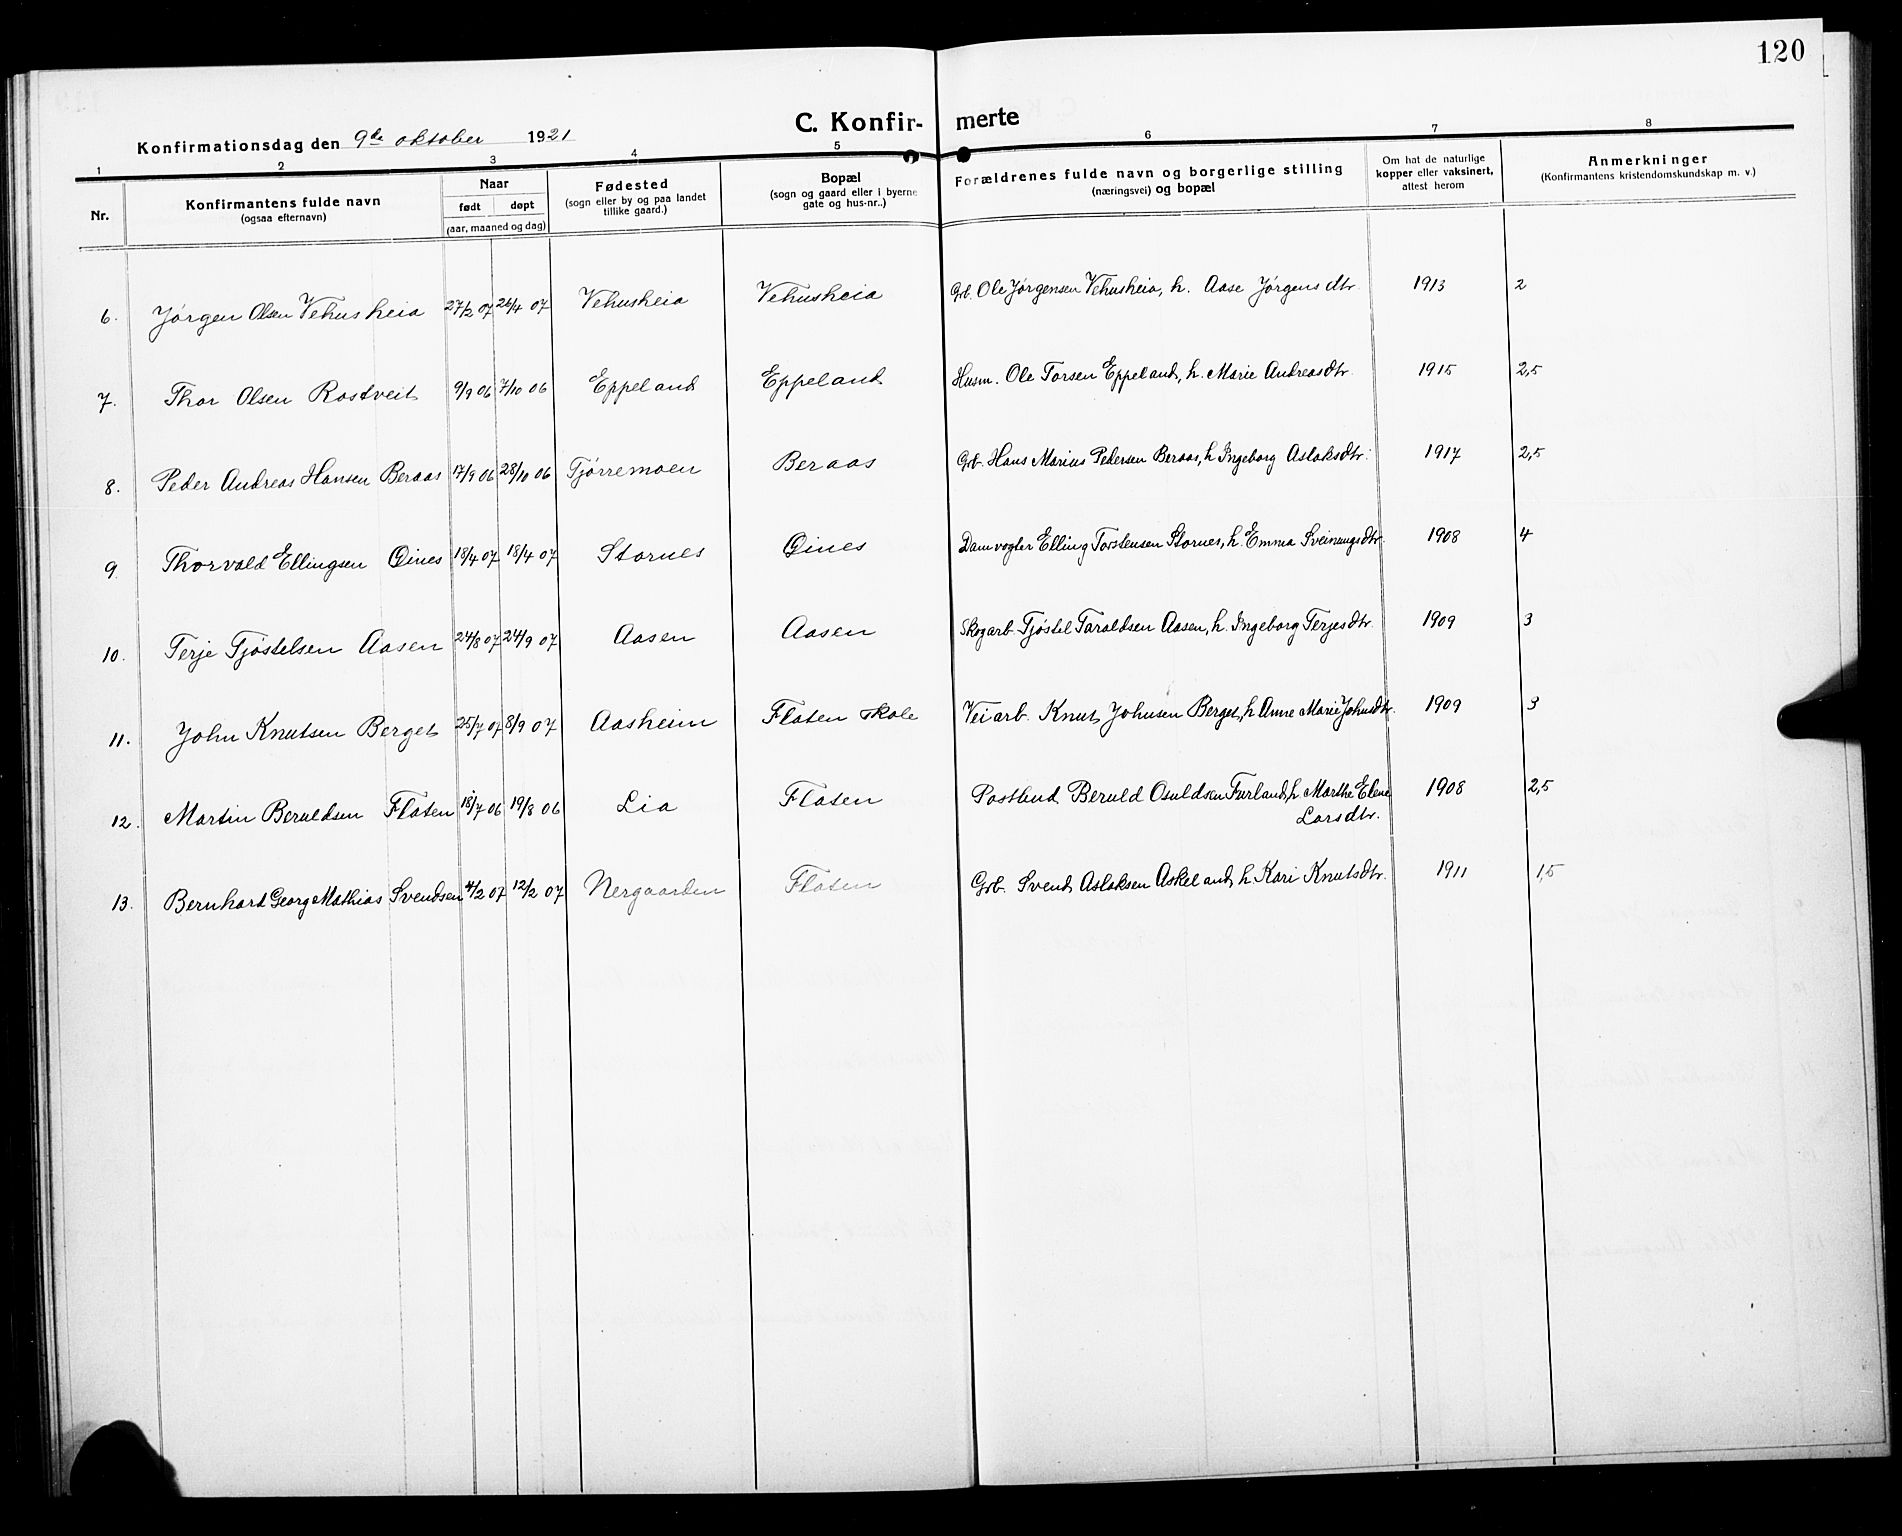 120
C. Konfirmerte
Konfirmationsdag den 9de oktober 1921
1 2 3 4 5 6 7 8
Nr.
Konfirmantens fulde navn
(ogsaa efternavn)
Naar
født døpt
(aar, maaned og dag)
Fødested
(sogn eller by og paa landet
tillike gaard.)
Bopæl
(sogn og gaard eller i byerne
gate og hus-nr..)
Forældrenes fulde navn og borgerlige stilling
(næringsvei) og bopæl
Om hat de naturlige
kopper eller vaksinert,
attest herom
Anmerkninger
(Konfirmantens kristendomskundskap m. v.)
6. Jørgen Olsen Vehusheia 27/2 07 26/4 07 Vehusheia Vehusheia Grb. Ole Jørgensen Vehusheia, h. Aase Jørgensdtr. 1913 2
7. Thor Olsen Rostveit 9/9 06 7/10 06 Eppeland Eppeland Husm. Ole Torsen Eppeland, h. Marie Andreasdtr. 1915 2,5
8. Peder Andreas Hansen Beraas 17/9 06 28/10 06 Tjørremoen Beraas Grb. Hans Marius Pedersen Beraas, h. Ingeborg Aslaksdtr. 1917 2,5
9. Thorvald Ellingsen Gines 18/4 07 18/4 07 Stornes Gines Damvogter Elling Torstensen Stornes, h. Emma Sveinungsdtr. 1908 4
10. Terje Tjøstelsen Aasen 24/8 07 24/9 07 Aasen Aasen Skogarb. Tjøstel Taraldsen Aasen, h. Ingeborg Terjesdtr. 1909 3
11. John Knutsen Berget 25/7 07 8/9 07 Aasheim Flaten skole Veiarb. Knut Johnsen Berget, h. Anne Marie Johnsdtr. 1909 3
12. Martin Beruldsen Flaten 18/7 06 19/8 06 Lia Flaten Postbud Beruld Osuldsen Furland, h. Marthe Elene 1908 2,5
Larsdtr.
13. Bernhard Georg Mathias Svendsen 4/2 07 12/2 07 Nergaarden Flaten Grb. Svend Aslaksen Askeland, h. Kari Knutsdtr. 1911 1,5